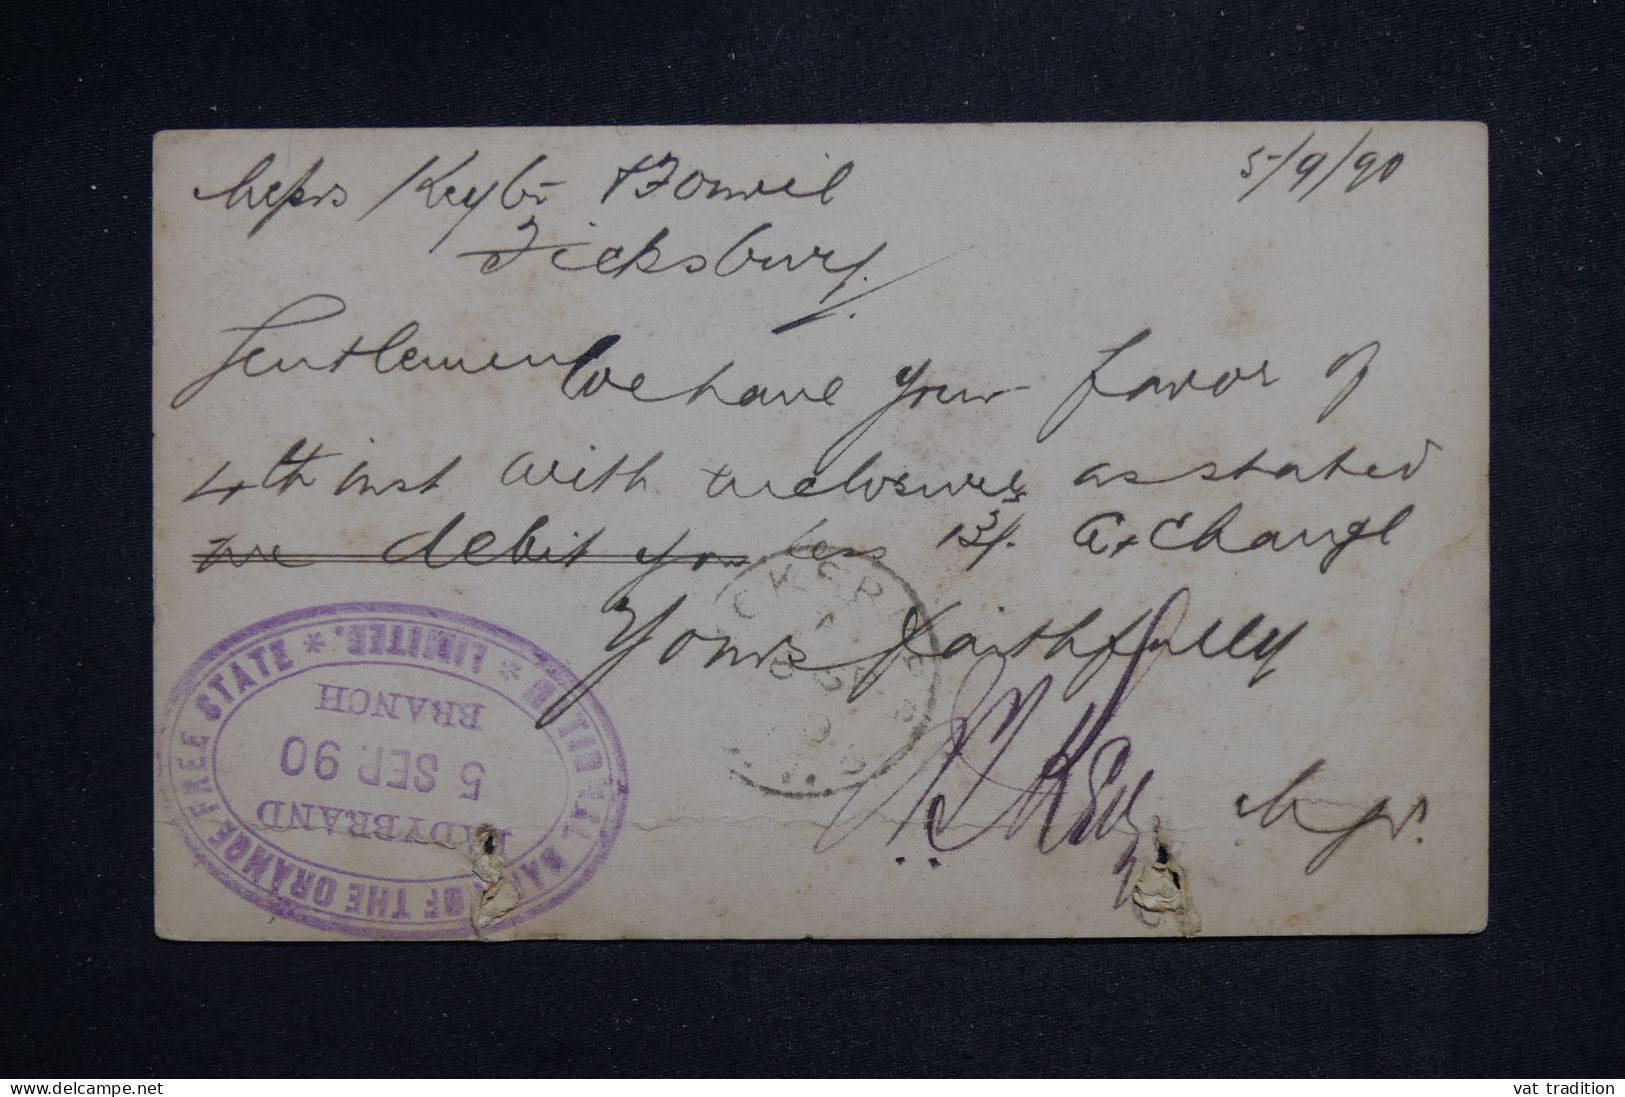 5/9/90
Messrs Keyter & Fouril
Ficksburg.
Gentlemen We have your favor of
4th inst with enclosures as stated
we debit you less 13/. Exchange
Yours faithfully
Mgr.
NATIONAL BANK OF THE ORANGE FREE STATE * LIMITED. *
LADYBRAND
5 SEP. 90
BRANCH
www.delcampe.net
vat tradition